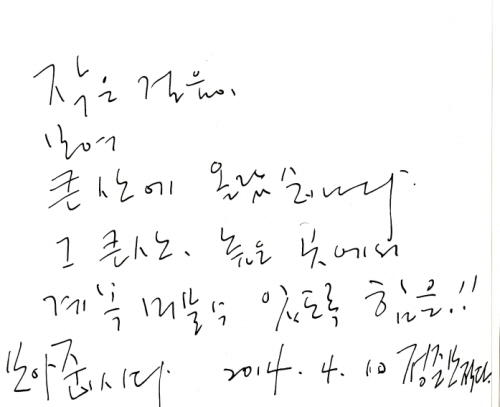 작은 걸음이
모여
큰 산에 올랐습니다.
그 큰 산, 높은 곳에서
계속 머물 수 있도록 힘을!!
모아 줍시다. 2014. 4. 10